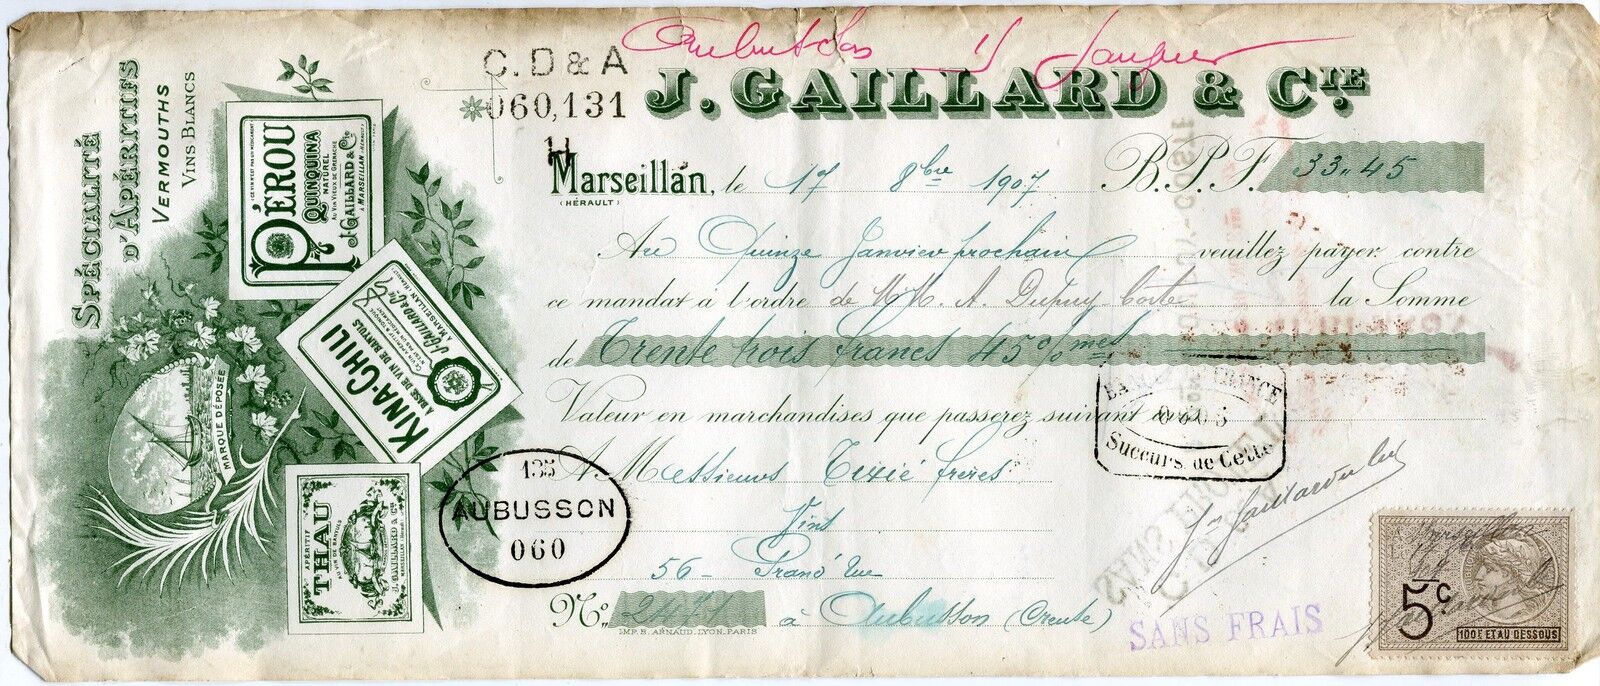 SPÉCIALITÉ
D'APÉRITIFS
VERMOUTHS
VINS BLANCS
PÉROU
QUINQUINA
NATUREL
AU VIN VIEUX DE GRENACHE
J. GAILLARD & Cie
À MARSEILLAN (HÉRAULT)
KINA-CHILI
À BASE DE VIN DE BANYULS
J. GAILLARD & Cie
À MARSEILLAN (HÉRAULT)
MARQUE DÉPOSÉE
APÉRITIF
THAU
AU VIN DE BANYULS
J. GAILLARD & Cie
C. D & A
060,131
J. GAILLARD & CIE
H
Marseillan, le 17 8bre 1907 B.P.F. 33.45
(HÉRAULT)
Au Quinze Janvier prochain veuillez payer contre
ce mandat à l'ordre de MM. A. Dupuy Coste la Somme
de Trente trois francs 45 c/mes
Valeur en marchandises que passerez suivant
FRANCE
Succurs. de Cette
A Messieurs Tixié frères
Vins
56 - Grand'rue
No. 2471 à Aubusson (Creuse)
IMP. B. ARNAUD. LYON. PARIS
135
AUBUSSON
060
SANS FRAIS
5c
100F ET AU DESSOUS